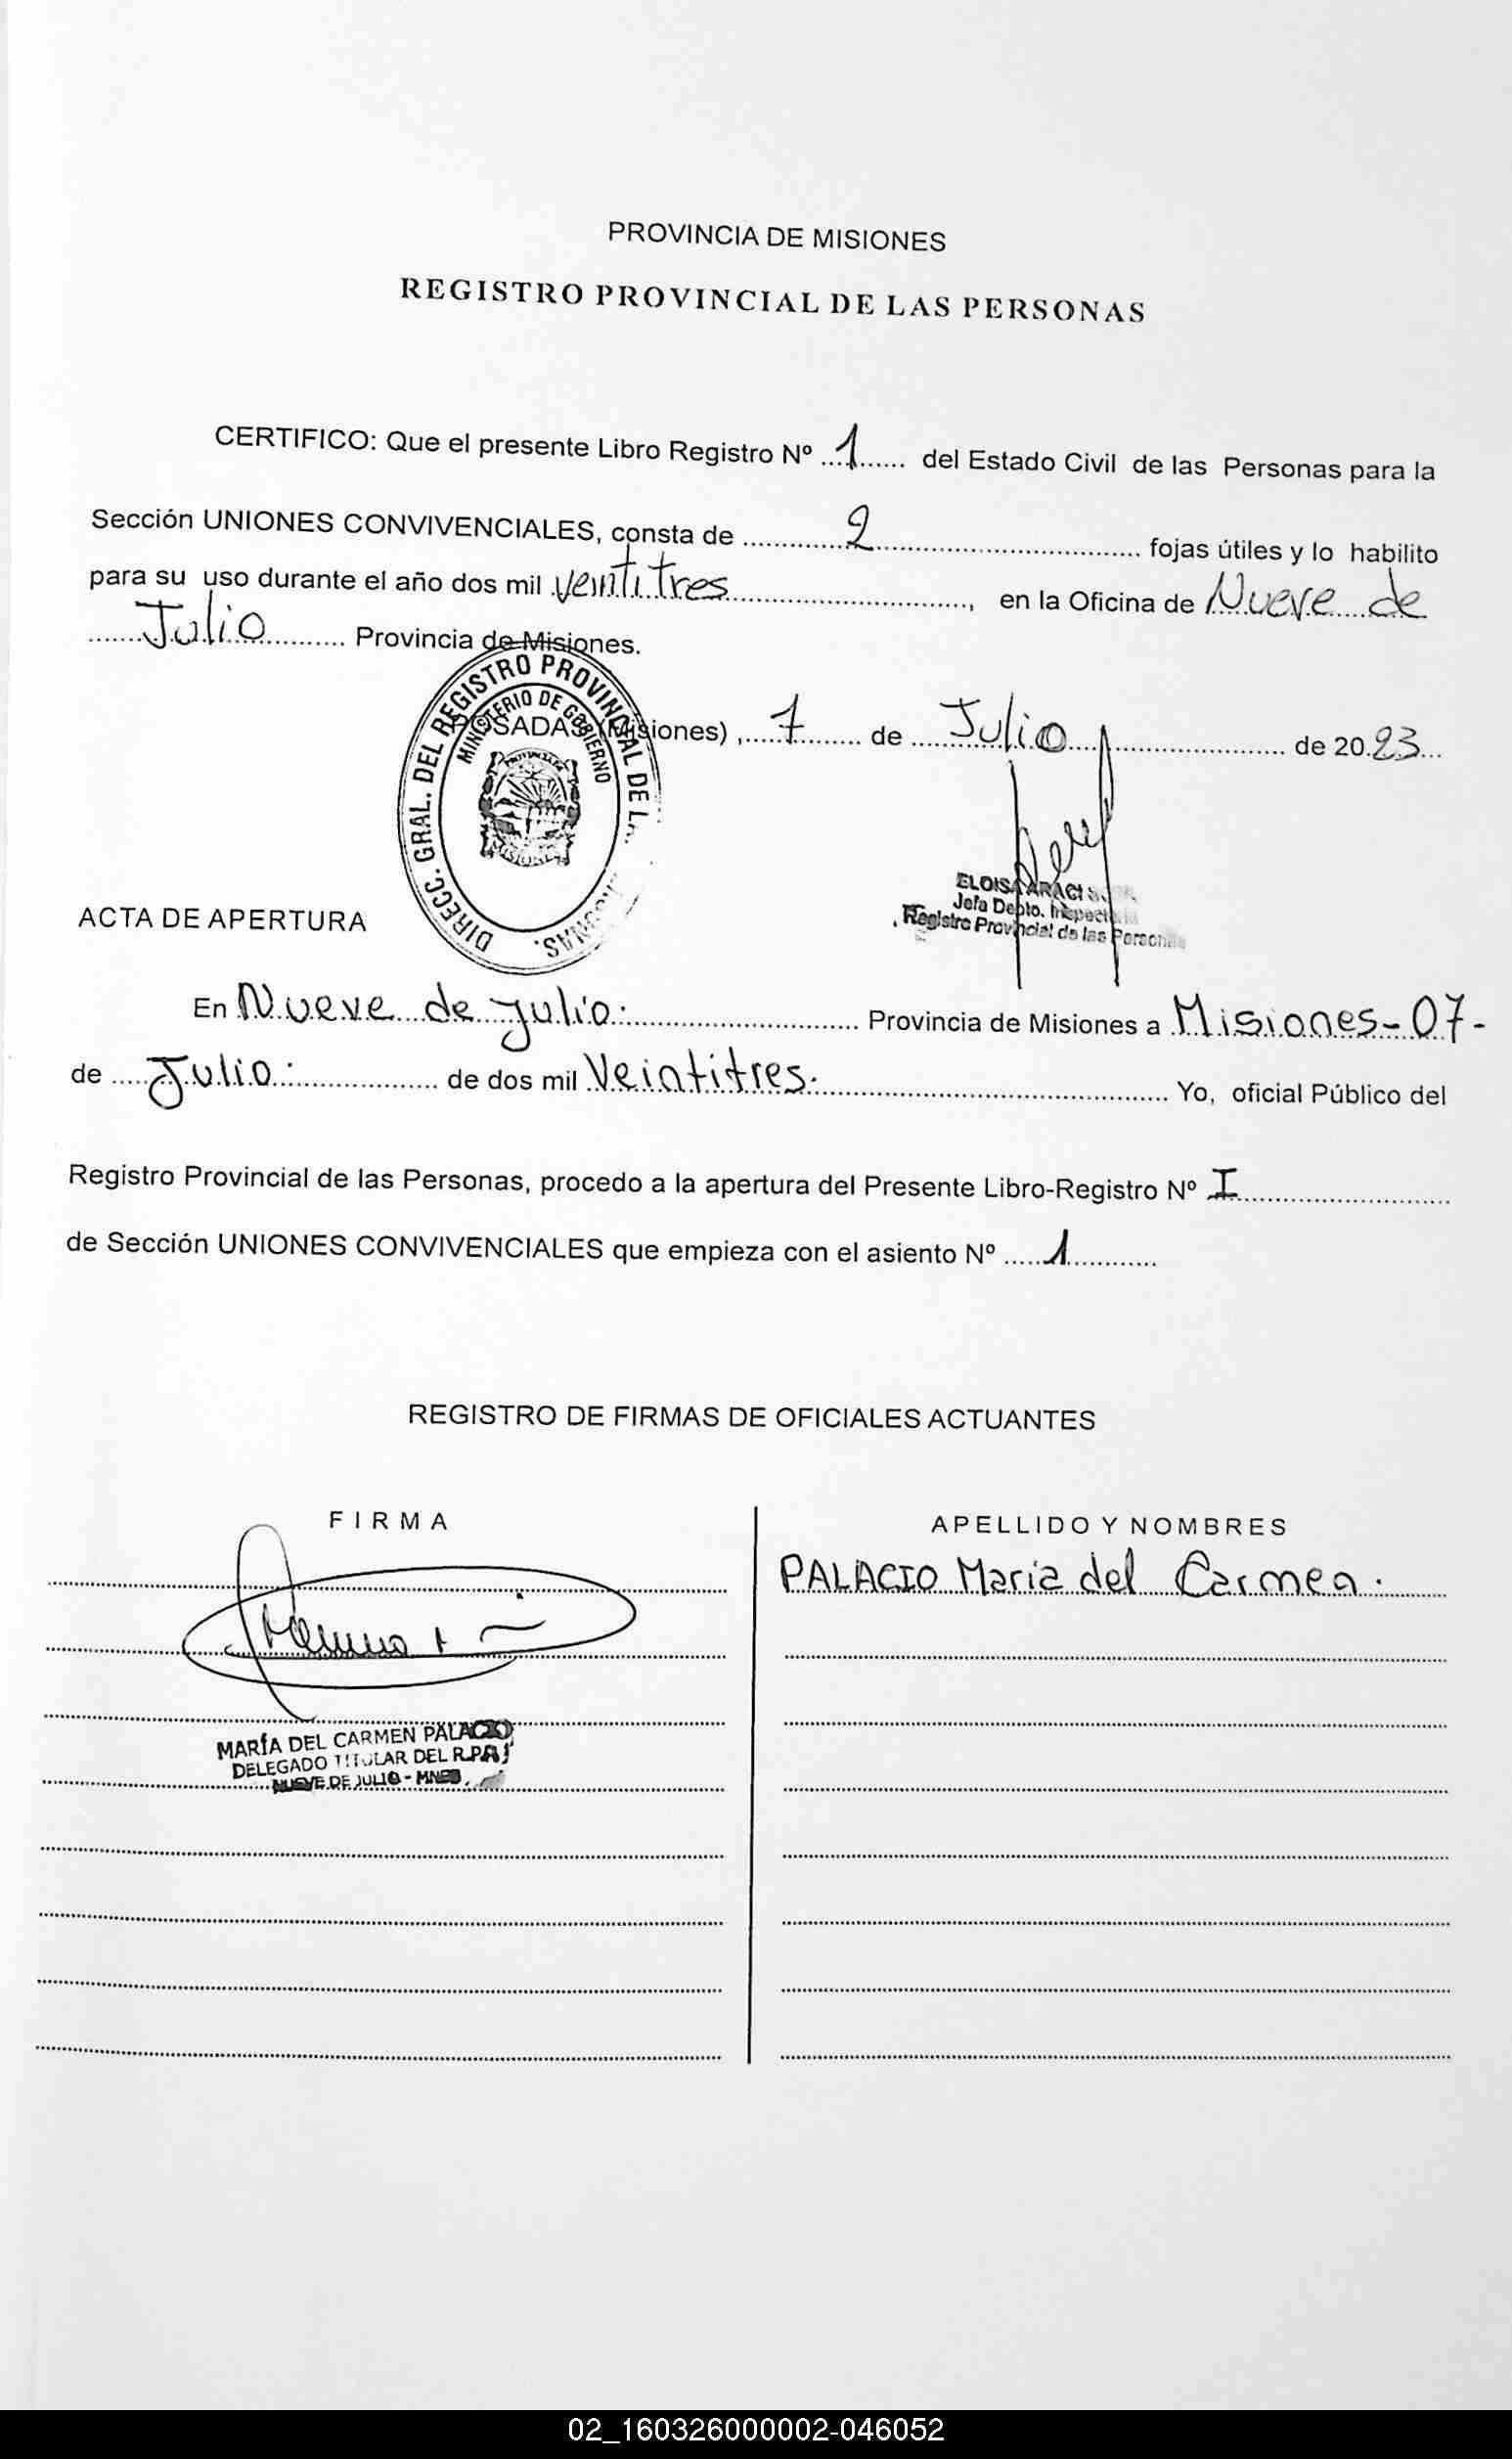 PROVINCIA DE MISIONES
REGISTRO PROVINCIAL DE LAS PERSONAS
CERTIFICO: Que el presente Libro Registro Nº ...1...... del Estado Civil de las Personas para la
Sección UNIONES CONVIVENCIALES, consta de ............2............ fojas útiles y lo habilito
para su uso durante el año dos mil veintitres............, en la Oficina de Nueve de
.......Julio............ Provincia de Misiones.
POSADAS (Misiones) ,.....7......... de .....Julio............ de 2023...
DIRECC. GRAL. DEL REGISTRO PROVINCIAL DE LAS PERSONAS.
MINISTERIO DE GOBIERNO
MISIONES
ELOISA ARACI
Jefa Depto. Inspectoria
Registro Provincial de las Personas
ACTA DE APERTURA
En Nueve de Julio.............. Provincia de Misiones a Misiones-07-
de .....Julio.............. de dos mil Veintitres.............. Yo, oficial Público del
Registro Provincial de las Personas, procedo a la apertura del Presente Libro-Registro Nº I..............
de Sección UNIONES CONVIVENCIALES que empieza con el asiento Nº .....1............
REGISTRO DE FIRMAS DE OFICIALES ACTUANTES
FIRMA
APELLIDO Y NOMBRES
PALACIO Maria del Carmen.
MARÍA DEL CARMEN PALACIO
DELEGADO TITULAR DEL R.P.P.
NUEVE DE JULIO - MNES
02_160326000002-046052